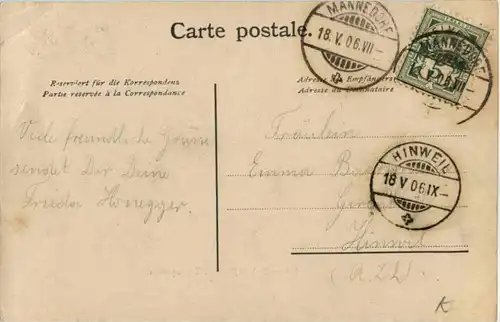 Carte postale.
MÄNNEDORF
18.V.06.VII—
MÄNNEDORF
Reserviert für die Korrespondenz
Partie reservée à la Correspondance
Adresse des Empfängers
Adresse du Destinataire
Viele freundliche Grüsse
sendet Dir Deine
Frieda Honegger.
Fräulein
Emma
HINWEIL
18 V 06.IX—
Hinwil
K